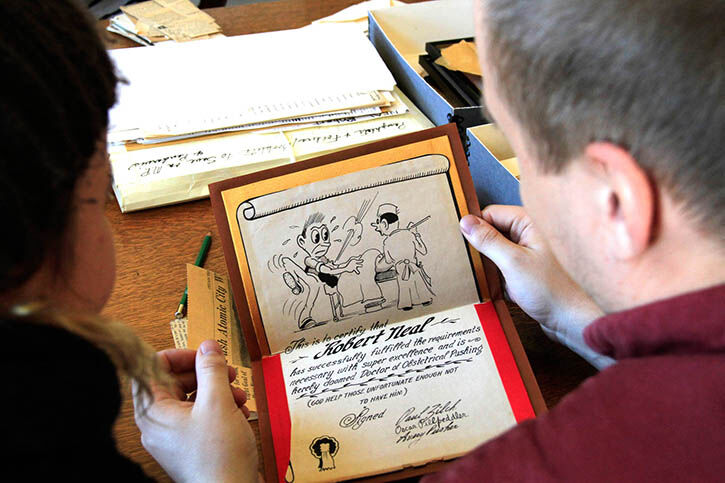 Pamphlets & Technical
This is to certify that
Robert Neal
has successfully fulfilled the requirements
necessary with super excellence and is
hereby doomed Doctor of Obstetrical Pushing
(GOD HELP THOSE UNFORTUNATE ENOUGH NOT
TO HAVE HIM)
Signed
Paul Zilch
Oscar Pillpeddler
ush Atomic City